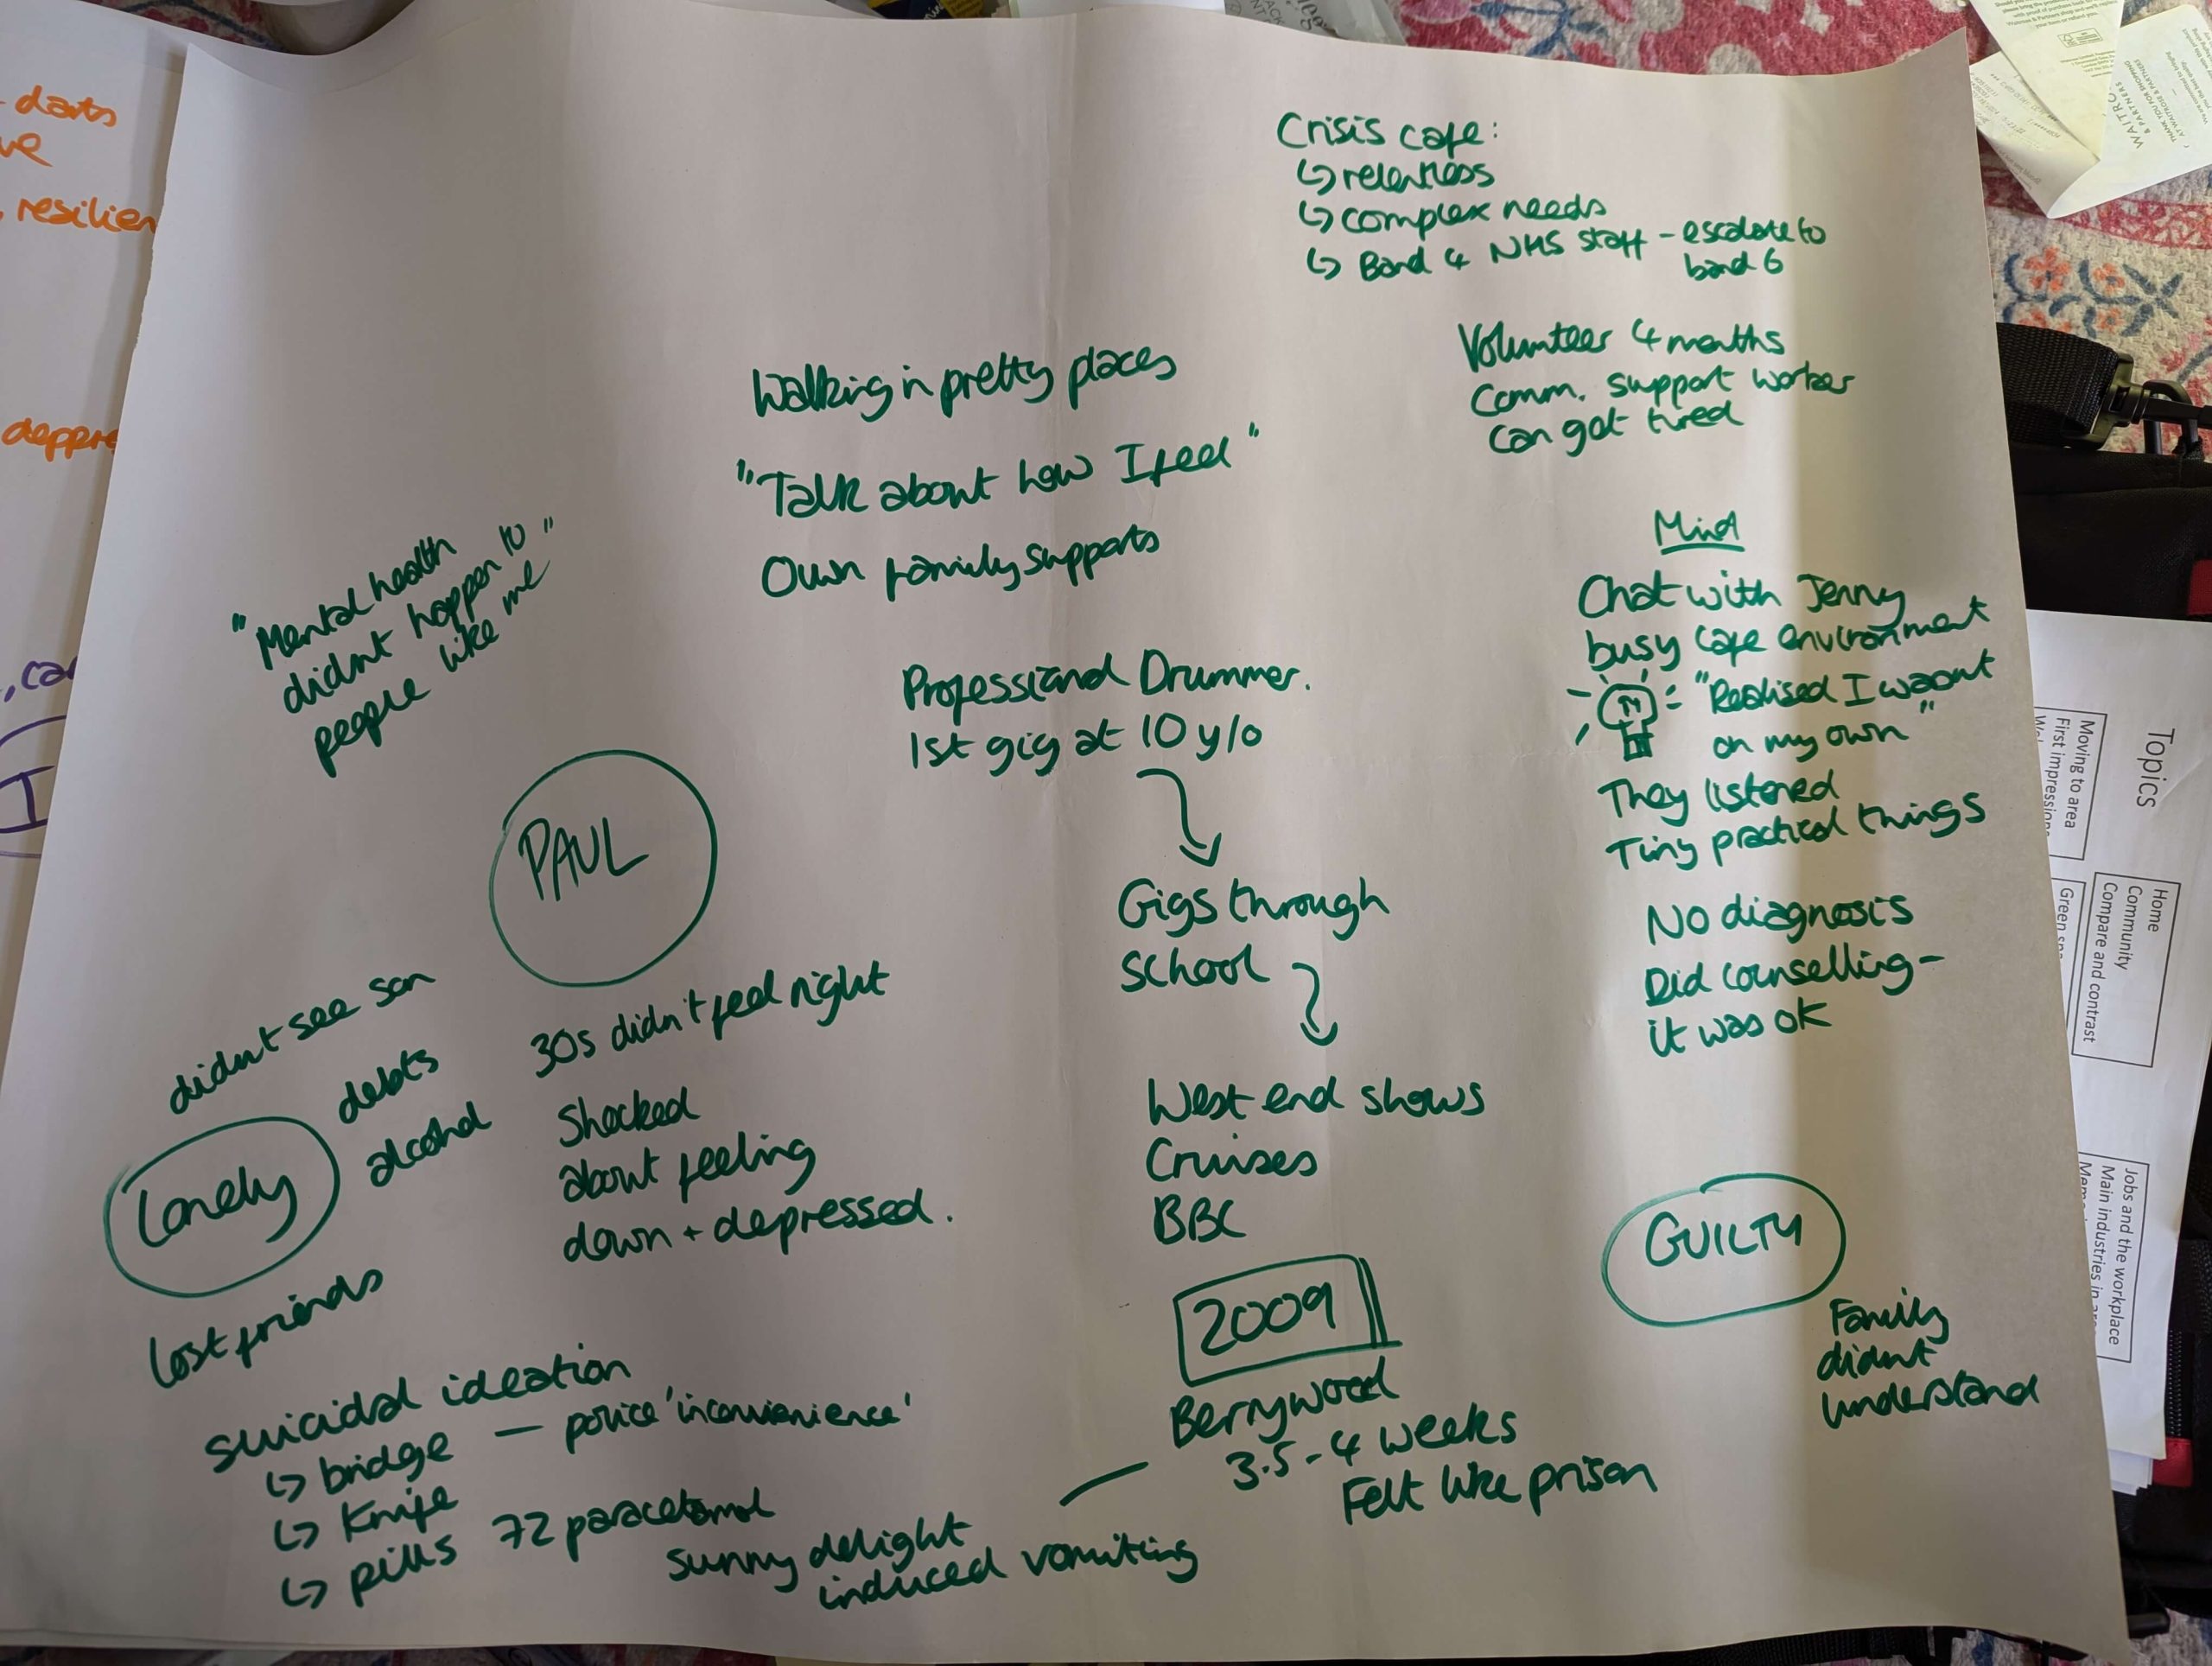 Crisis cafe:
↳ relentless
↳ complex needs
↳ Band 4 NHS staff - escalate to
band 6
Volunteer 4 months
Comm. support worker
can get tired
Walking in pretty places
"Talk about how I feel"
Own family supports
"Mental health
didnt happen to"
people like me
Mind
Chat with Jenny
busy cafe environment
"Realised I wasnt
on my own"
They listened
Tiny practical things
No diagnosis
Did counselling -
it was ok
Professional Drummer.
1st gig at 10 y/o
Gigs through
school
West end shows
Cruises
BBC
PAUL
30s didn't feel right
Shocked
about feeling
down + depressed.
didnt see son
debts
alcohol
Lonely
lost friends
suicidal ideation
↳ bridge — police 'inconvienience'
↳ Knife
↳ pills 72 paracetamol
sunny delight
induced vomiting
2009
Berrywood
3.5-4 weeks
Felt like prison
GUILTY
Family
didnt
understand
- darts
resilien
Topics
Moving to area
First impressions
Home
Community
Compare and contrast
Jobs and the workplace
Main industries in
WAITRO
& PARTNERS
THANK YOU FOR SHOPPING
AT WAITROSE & PARTNERS